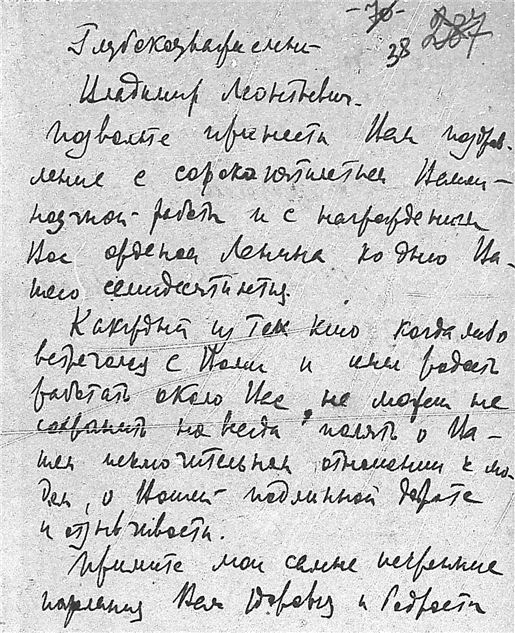 -70- 287
38 207
Глубокоуважаемый
Владимир Леонтьевич.
Позвольте принести Вам поздрав-
ление с сорокалетием Вашей
научной работы и с награждением
Вас орденом Ленина ко дню Ва-
шего семидесятилетия.
Каждый из тех кто когда либо
встречался с Вами и имел радость
работать около Вас, не может не
сохранить навсегда память о Ва-
шем исключительном отношении к лю-
дям, о Вашей подлинной доброте
и отзывчивости.
Примите мои самые искренние
пожелания Вам здоровья и бодрости